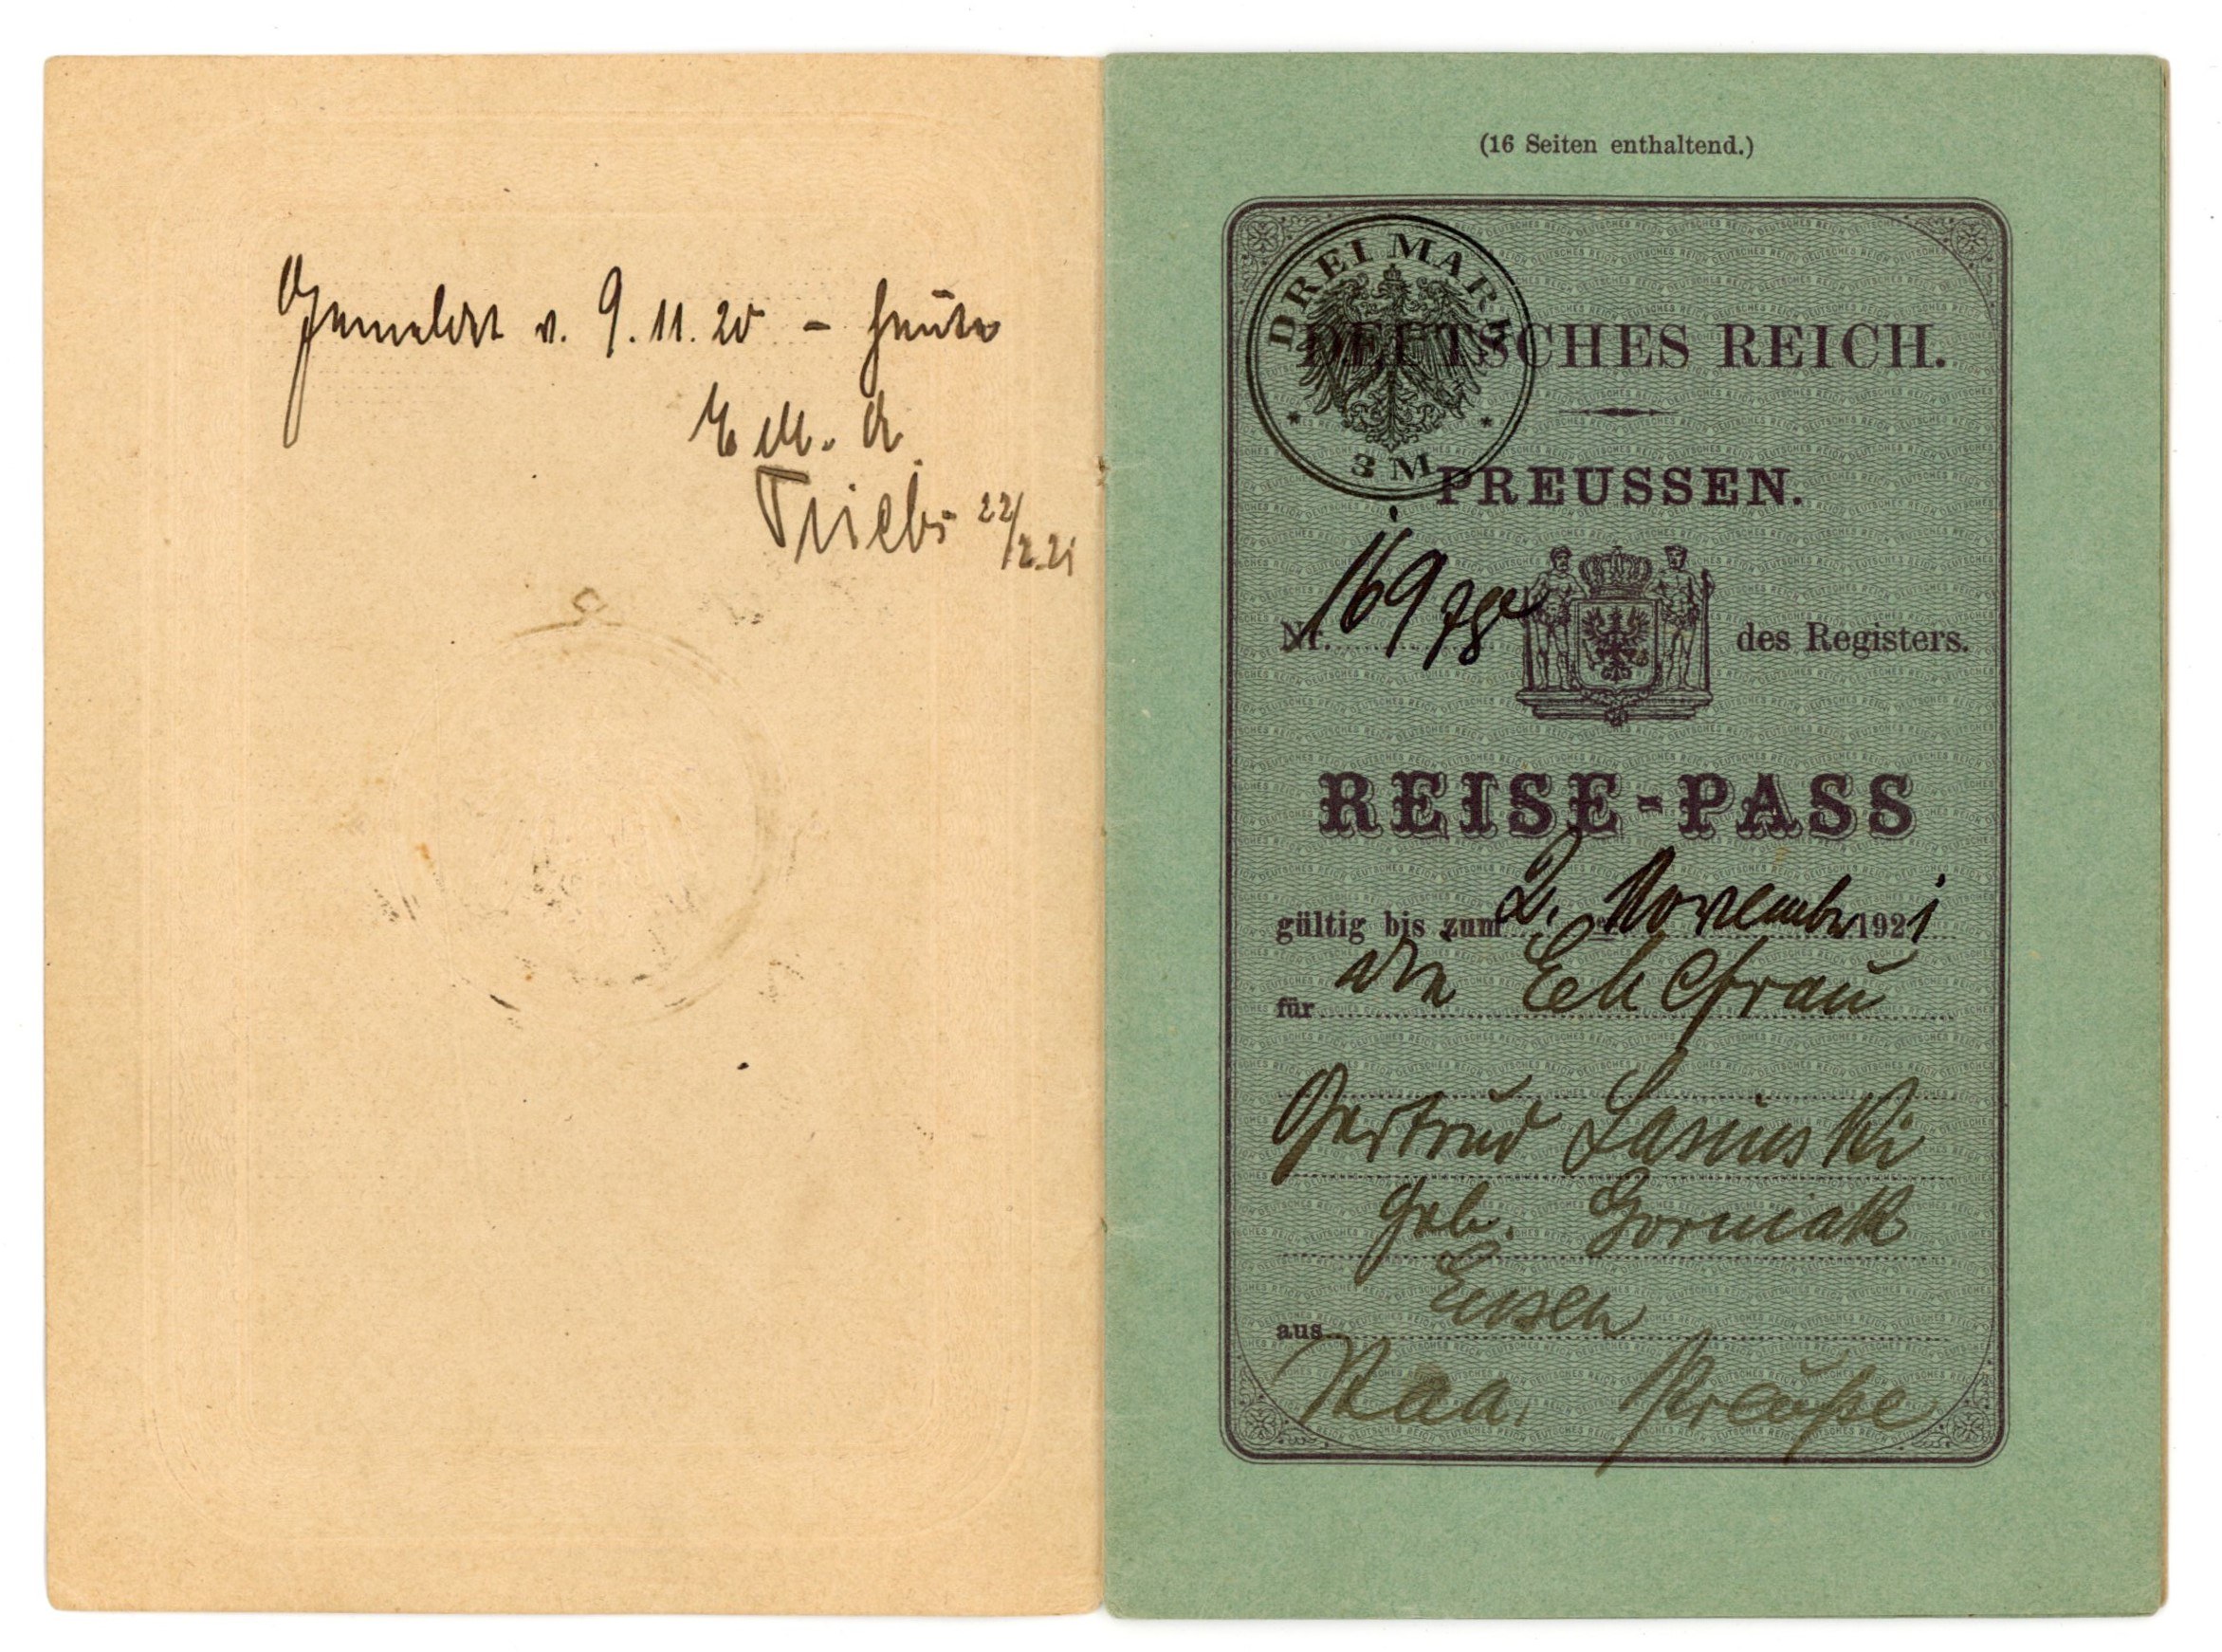 Gemeldet v. 9.11.20 - heute
E.M.A.
Triebs 22/2.21
(16 Seiten enthaltend.)
DREI MARK
3 M
DEUTSCHES REICH.
PREUSSEN.
Nr. 169 des Registers.
REISE-PASS
gültig bis zum 2. November 1921
für die Ehefrau
Gertrud Lasinski
geb. Gorniak
aus Essen